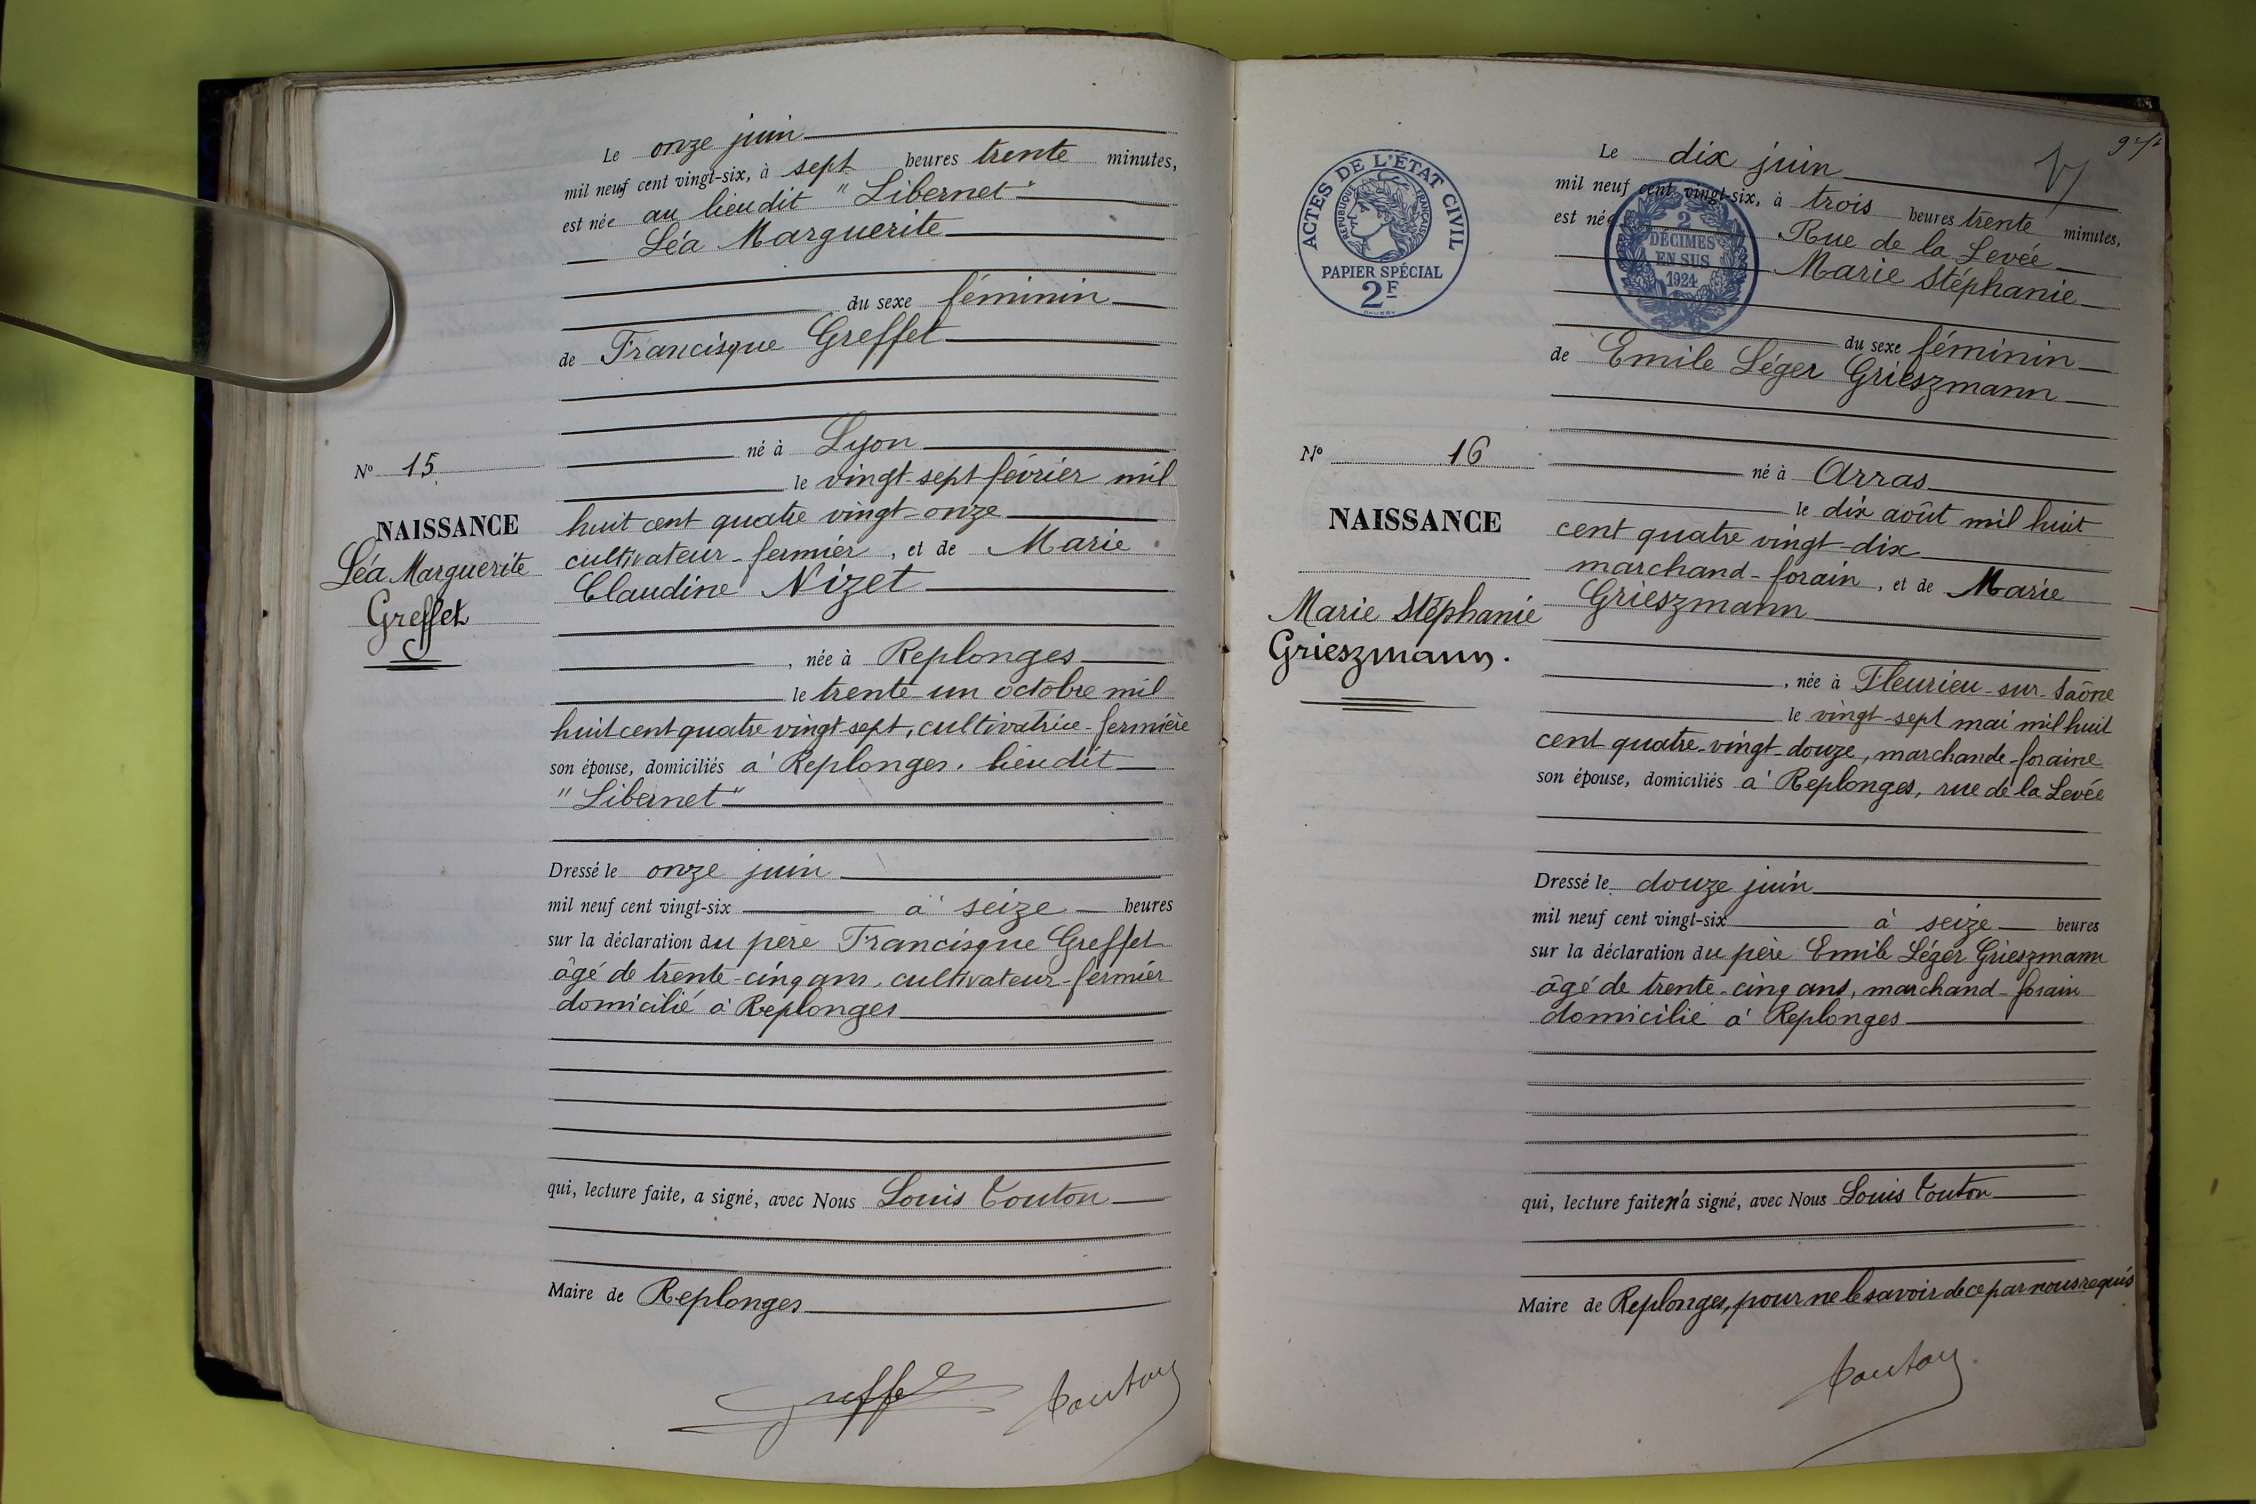 Le onze juin
mil neuf cent vingt-six, à sept heures trente minutes,
est née au lieu dit "Libernet"
Léa Marguerite
du sexe féminin
de Francisque Greffet
né à Lyon
le vingt-sept février mil
huit cent quatre vingt-onze
cultivateur-fermier, et de Marie
Claudine Nizet
, née à Replonges
le trente un octobre mil
huit cent quatre vingt-sept, cultivatrice-fermière
son épouse, domiciliés à Replonges, lieu dit
"Libernet"
Dressé le onze juin
mil neuf cent vingt-six à seize heures
sur la déclaration du père Francisque Greffet
âgé de trente-cinq ans, cultivateur-fermier
domicilié à Replonges
qui, lecture faite, a signé, avec Nous Louis Touton
Maire de Replonges
Greffet Touton
No 15
NAISSANCE
Léa Marguerite
Greffet
ACTES DE L'ÉTAT CIVIL
RÉPUBLIQUE FRANÇAISE
PAPIER SPÉCIAL
2F
2
DÉCIMES
EN SUS
1924
Le dix juin
mil neuf cent vingt-six, à trois heures trente minutes,
est née Rue de la Levée
Marie Stéphanie
du sexe féminin
de Emile Léger Grieszmann
né à Arras
le dix août mil huit
cent quatre vingt-dix
marchand-forain, et de Marie
Grieszmann
, née à Fleurieu-sur-Saône
le vingt-sept mai mil huit
cent quatre-vingt-douze, marchande-foraine
son épouse, domiciliés à Replonges, rue de la Levée
Dressé le douze juin
mil neuf cent vingt-six à seize heures
sur la déclaration du père Emile Léger Grieszmann
âgé de trente-cinq ans, marchand-forain
domicilié à Replonges
qui, lecture faite n'a signé, avec Nous Louis Touton
Maire de Replonges, pour ne le savoir de ce par nous requis
Touton
No 16
NAISSANCE
Marie Stéphanie
Grieszmann.